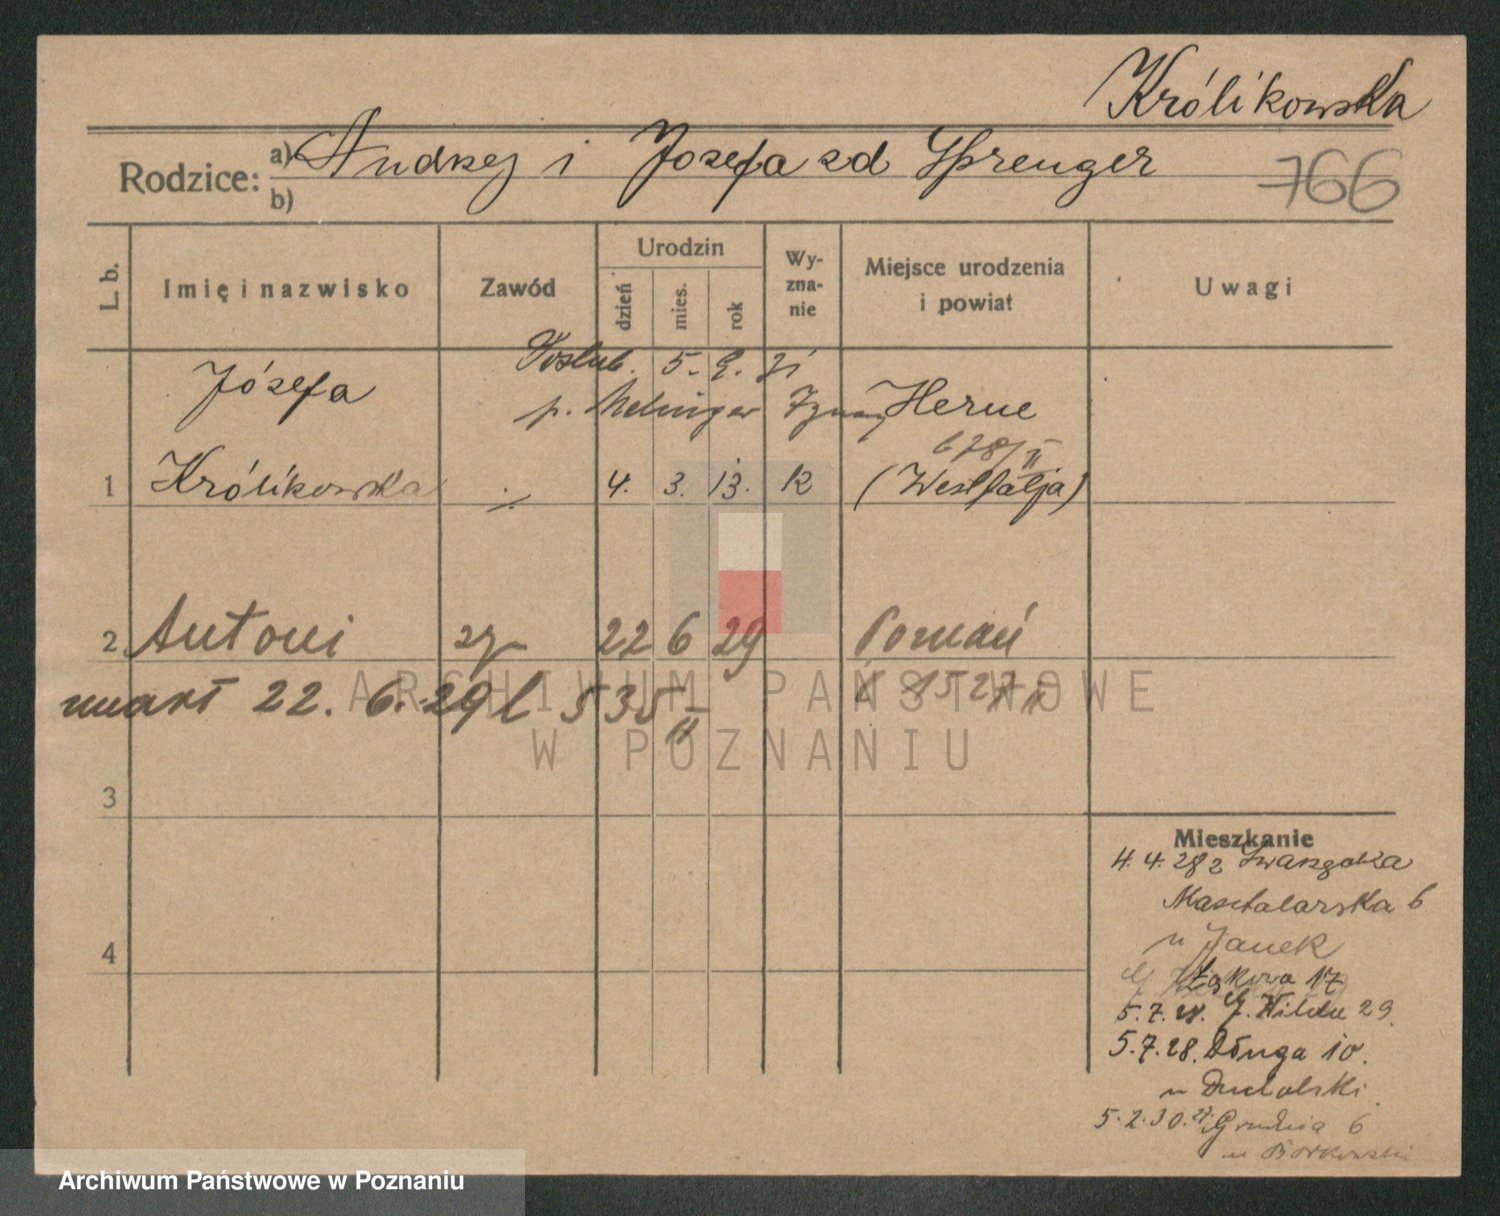 Królikowska
Rodzice: a) Andrzej i Józefa zd Sprenger
b)
766
L. b. Imię i nazwisko Zawód Urodzin dzień mies. rok Wy-zna-nie Miejsce urodzenia i powiat Uwagi
Poślub. 5. 9. 31
Józefa p. Herne
678/II
1 Królikowska ./. 4. 3. 13. R (Westfalja)
2 Antoni 22 6 29 Poznań
umarł 22. 6. 29 l 535 II
3
4
Mieszkanie
4. 4. 28 z Swarzędza
Masztalarska 6
u Janek
Łąkowa 17
5. 7. 28. G. Wilda 29
5. 7. 28. Długa 10.
u
5. 2. 30. 27 Grudnia 6
u Borkowski
ARCHIWUM PAŃSTWOWE
W POZNANIU
Archiwum Państwowe w Poznaniu